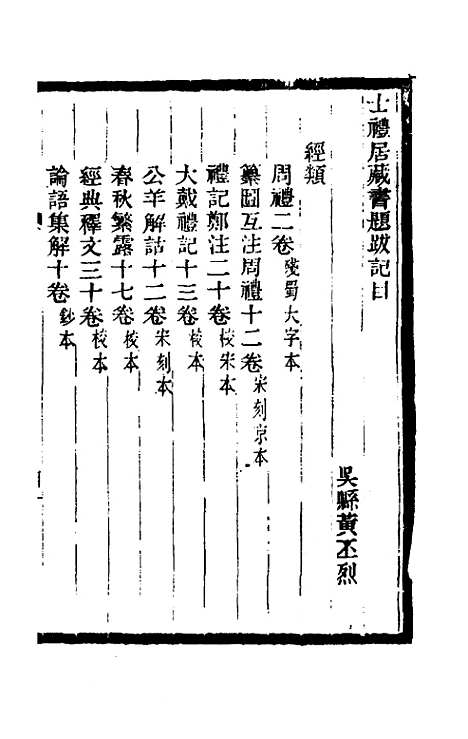 士禮居藏書題跋記目
吳縣黃丕烈
經類
周禮二卷殘蜀大字本
纂圖互注周禮十二卷宋刻京本
禮記鄭注二十卷校宋本
大戴禮記十三卷校本
公羊解詁十二卷宋刻本
春秋繁露十七卷校本
經典釋文三十卷校本
論語集解十卷鈔本